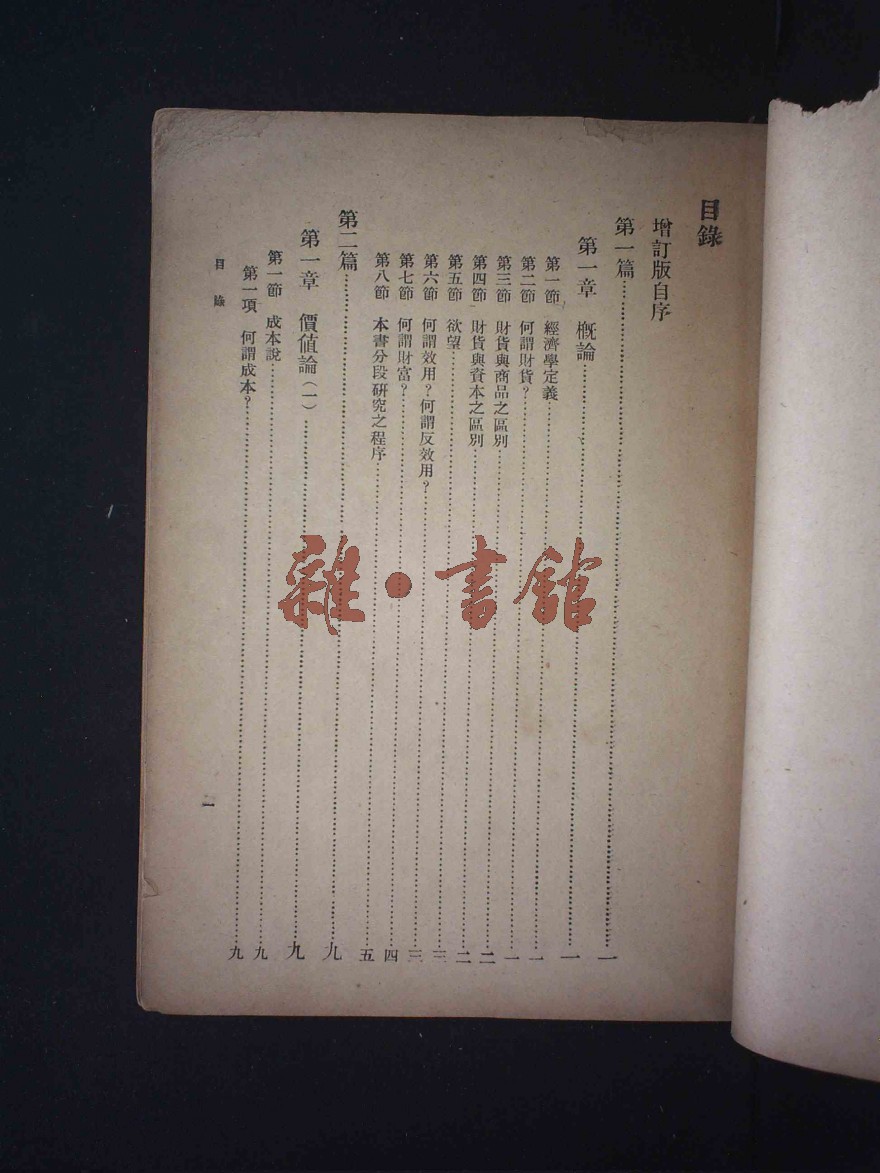 目錄
增訂版自序
第一篇……一
第一章 概論……一
第一節 經濟學定義……一
第二節 何謂財貨？……一
第三節 財貨與商品之區別……二
第四節 財貨與資本之區別……二
第五節 欲望……三
第六節 何謂效用？何謂反效用？……三
第七節 何謂財富？……四
第八節 本書分段研究之程序……五
第二篇……九
第一章 價值論（一）……九
第一節 成本說……九
第一項 何謂成本？……九
目錄
一
雜·書館